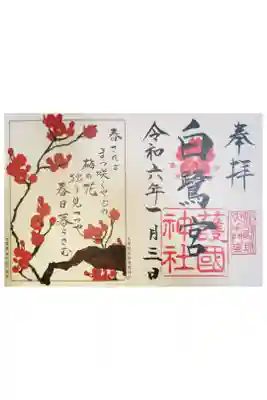 奉拝
白鷺宮
護國
神社
令和六年一月三日
春されば
まづ咲くやどの
梅の花
独り見つつや
春日暮らさむ